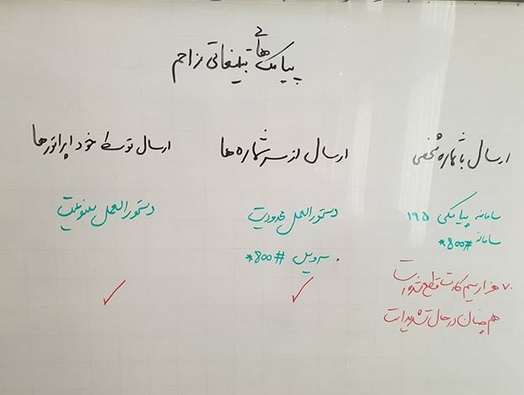 پیامک های تبلیغاتی مزاحم
ارسال با شماره شخصی
سامانه پیامکی ۱۹۵
سامانه #800*
۷۰ هزار سیم کارت قطع شده است
هم چنان در حال تشدید است
ارسال از سرشماره ها
دستورالعمل محدودیت
سرویس #800*
ارسال توسط خود اپراتورها
دستورالعمل ممنوعیت